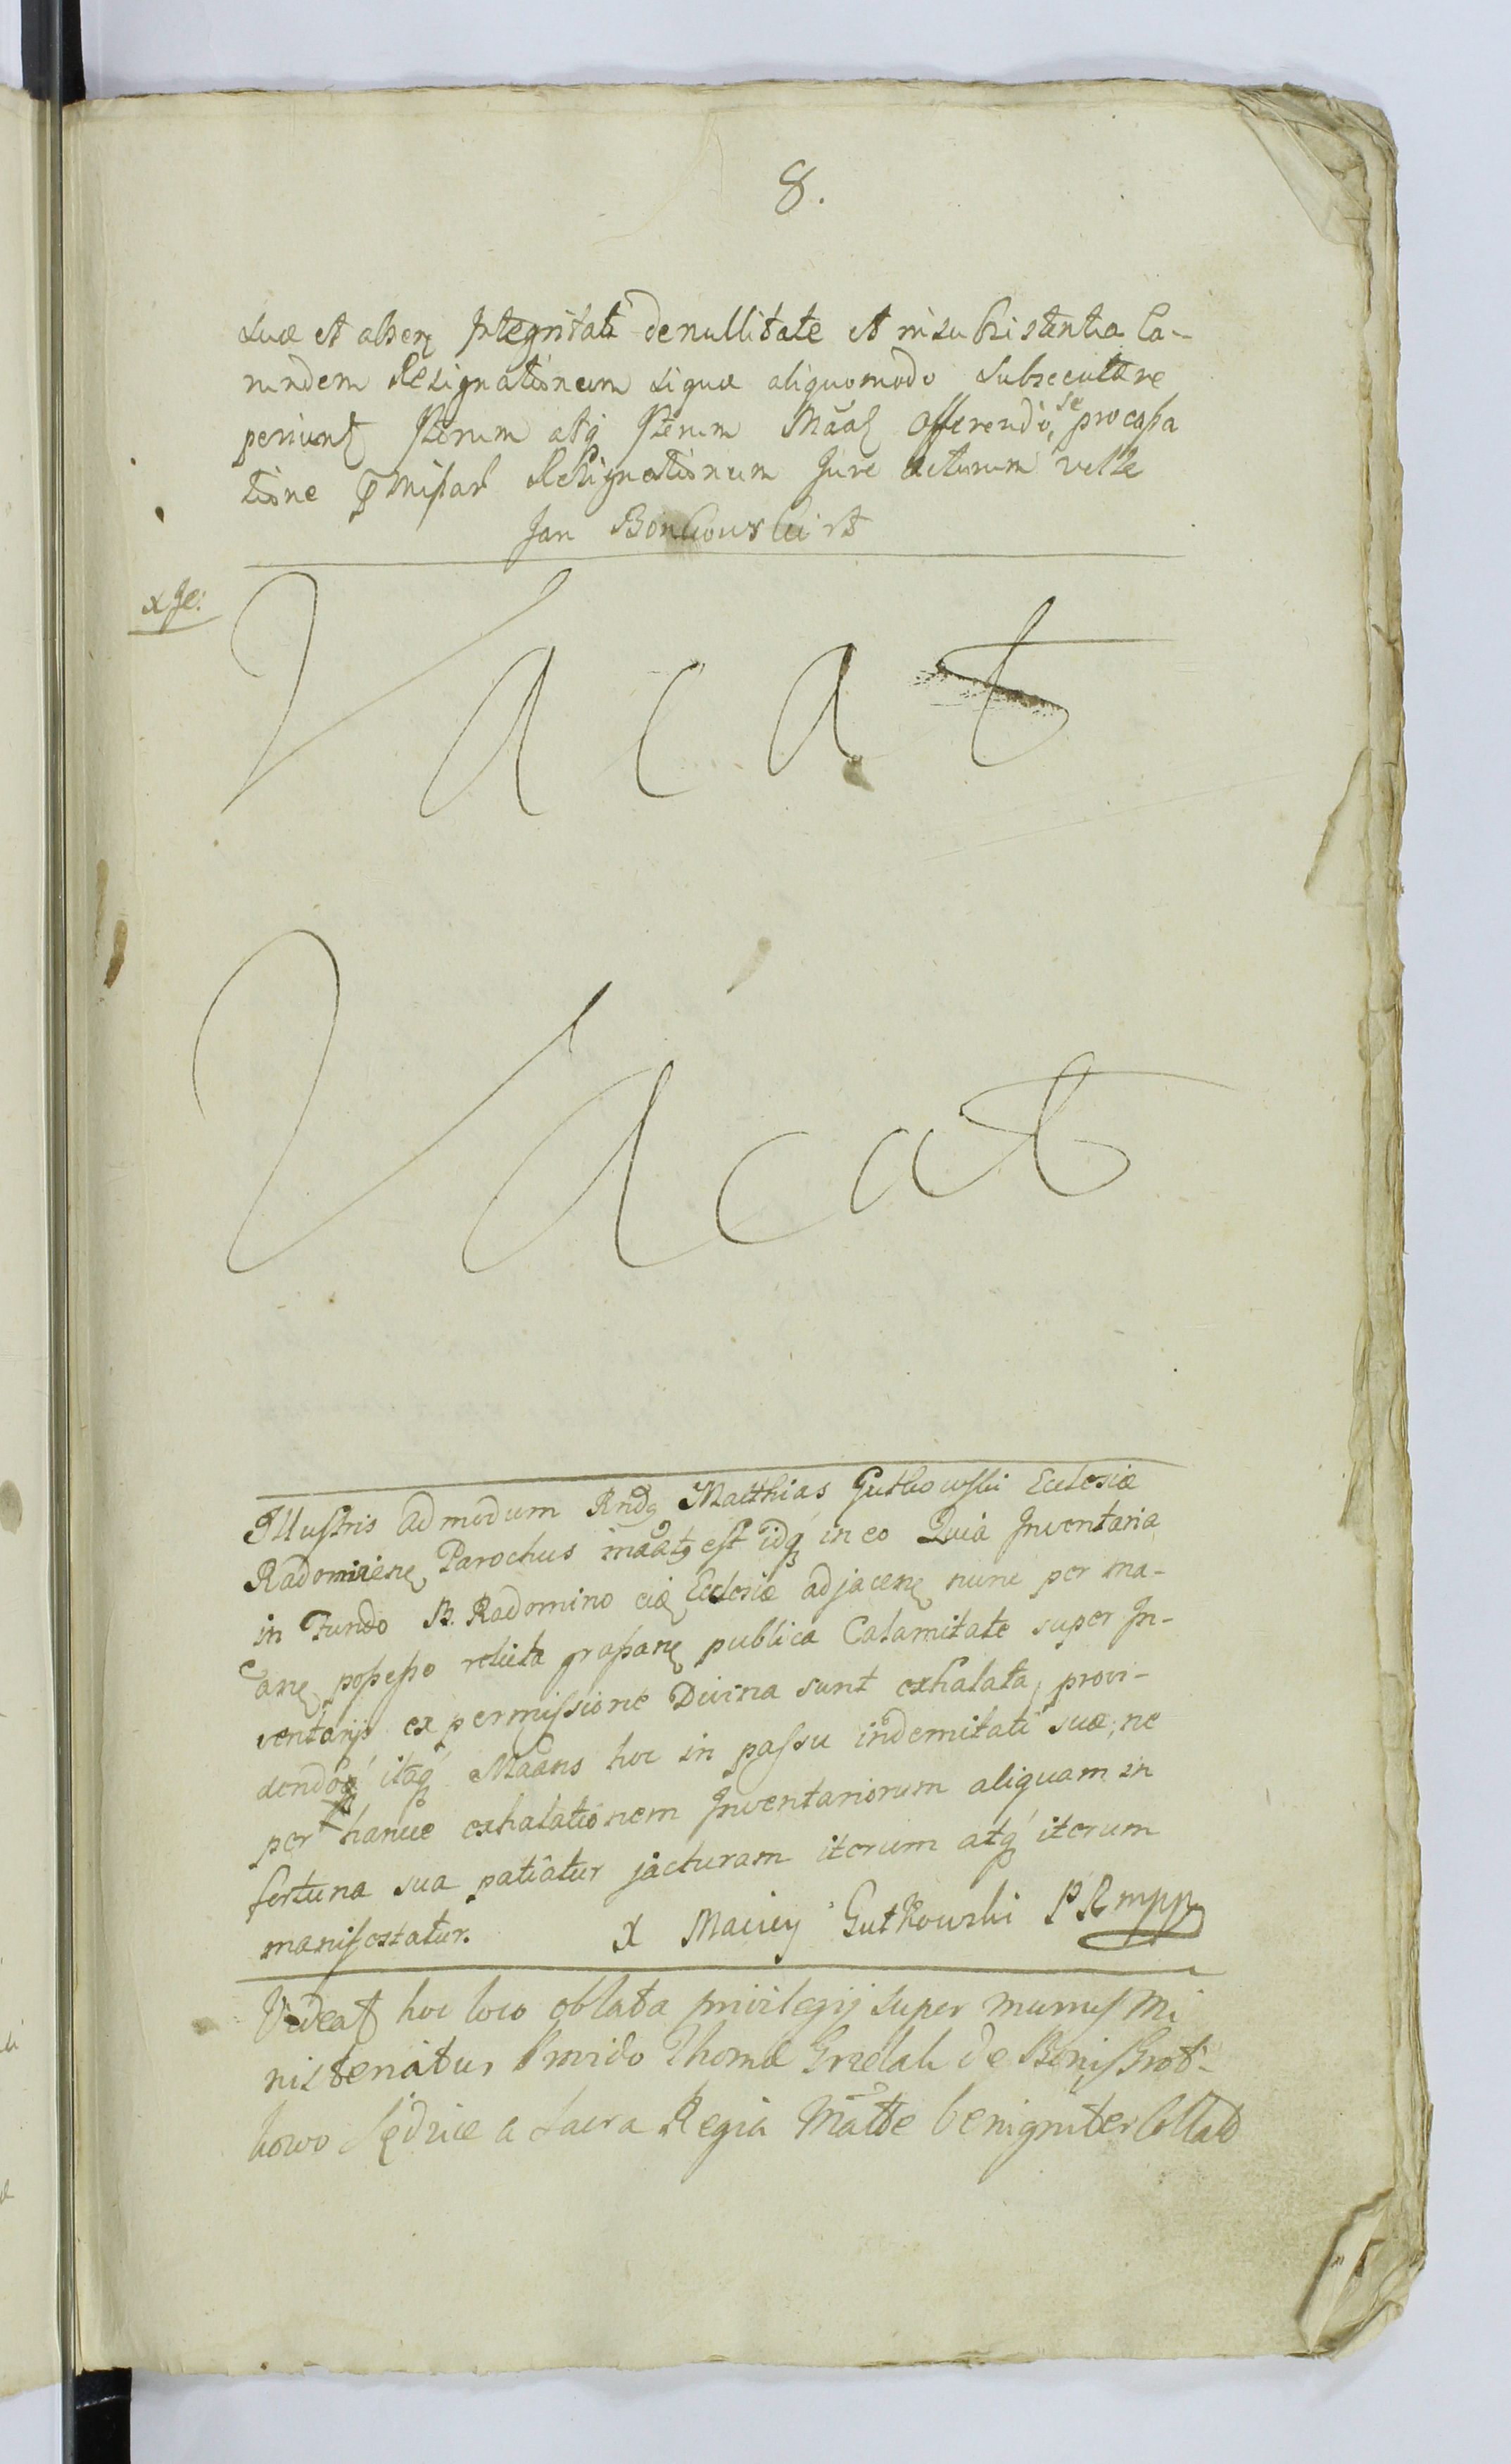 8.
suæ et absen Integritati de nullitate et insubsistentia Ea-
rundem Resignationum siquæ aliquomodo subsecutæ re
periunt Iterum atq Iterum Māat offerendo, se pro cassa
tione pmissar Resignationum Jure acturum velle
Jan Bonkowski
x Je:
Vacat
Vacat
Illustris admodum Rndq Matthias Gutkowski Ecclesiæ
Radominen Parochus māatq est idq in eo Quia Inventaria
in Fundo B. Radomino eiq Ecclesiæ adjacen nunc per ma-
ean possesso relicta grassan publica Calamitate super In-
ventarijs ex permissione Divina sunt exhalata, provi-
dendo itaq Māans hoc in passu indemitati suæ, ne
per hancce exhalationem Inventariorum aliquam in
fortuna sua patiatur jacturam iterum atq iterum
manifestatur. X Maciey Gutkowski PR mpp
Videat hoc loco oblata privilegij super munus Mi
nisteriatus Provido Thomæ Grzelak de Bonis Brot-
kowo Sędzice a Sacra Regia Matte benigniter Collat